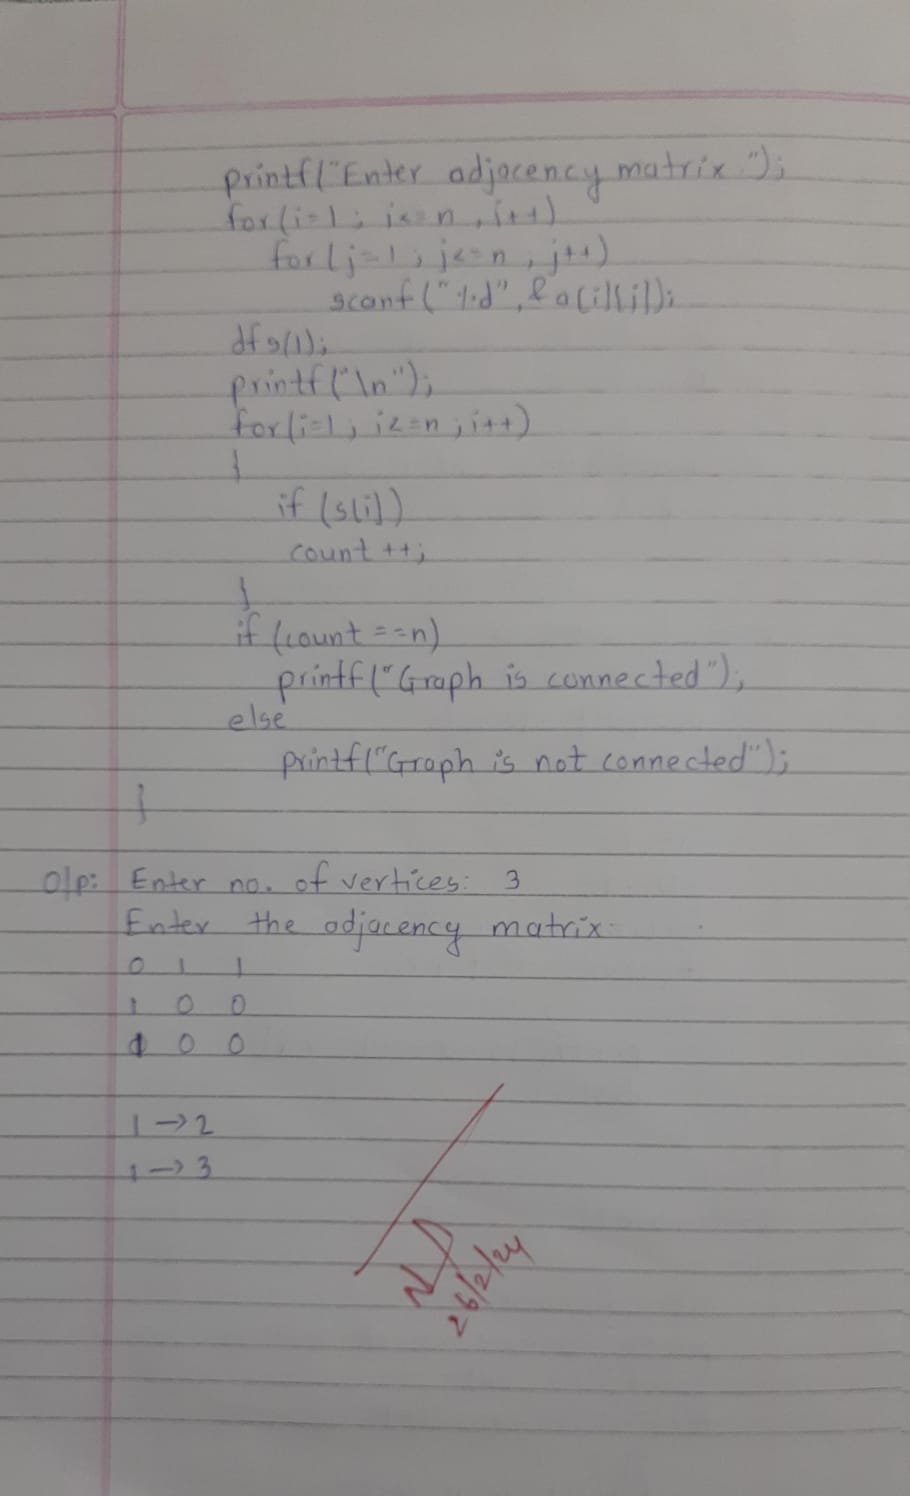 printf("Enter adjacency matrix ");
for(i=1; i<=n, i++)
for(j=1; j<=n, j++)
scanf("%d", &a[i][j]);
dfs(1);
printf("\n");
for(i=1; i<=n; i++)
{
if (s[i])
count ++;
}
if (count ==n)
printf("Graph is connected");
else
printf("Graph is not connected");
}
O/p: Enter no. of vertices: 3
Enter the adjacency matrix:
0 1 1
1 0 0
1 0 0
1 → 2
1 → 3
26/2/24